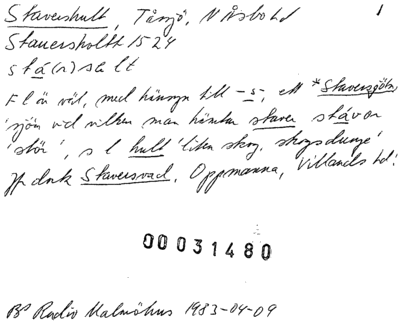 Stavershult, Tåsjö, N Åsbo hd 1
Stauersholtt 1524
stá(r)sølt
Fl är väl, med hänsyn till -s-, ett *Staversjön
'sjön vid vilken man hämtar staver, stávor
'stör', s l hult 'liten skog, skogsdunge'
Jfr dock Staversvad, Oppmanna, Villands hd.
00031480
BP Radio Malmöhus 1983-04-09